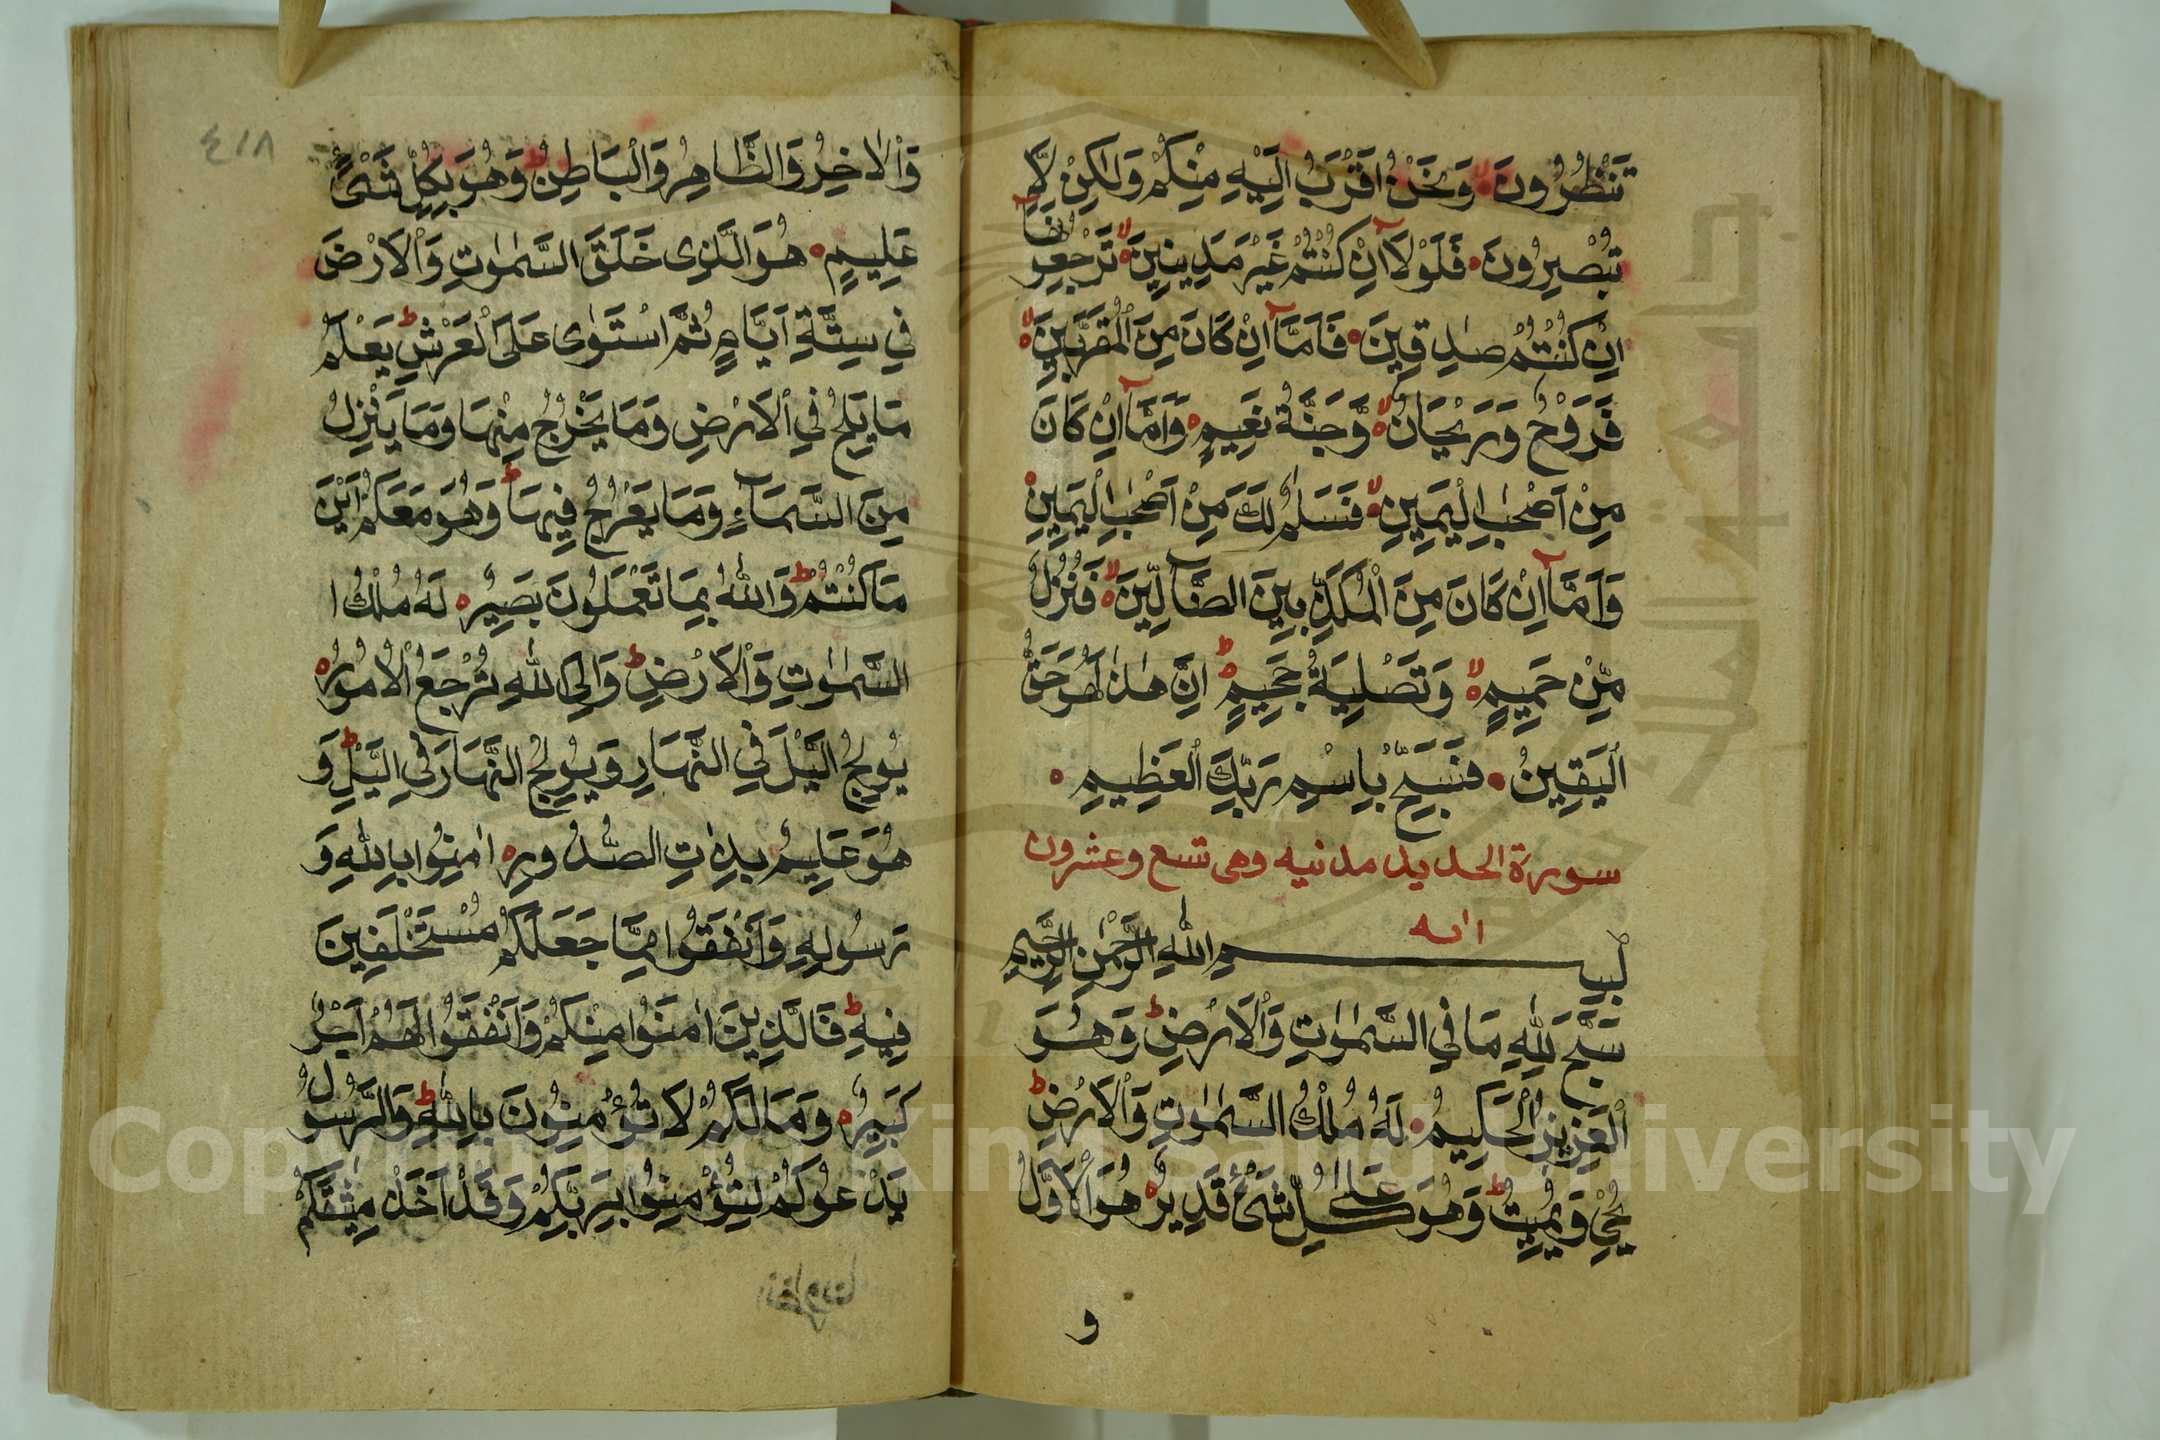 تَنْظُرُونَ وَنَحْنُ اَقْرَبُ اِلَيْهِ مِنْكُمْ وَلٰكِنْ لَا
تُبْصِرُونَ فَلَوْلَا اِنْ كُنْتُمْ غَيْرَ مَدِينِينَ تَرْجِعُونَهَا
اِنْ كُنْتُمْ صٰدِقِينَ فَاَمَّا اِنْ كَانَ مِنَ الْمُقَرَّبِينَ
فَرَوْحٌ وَرَيْحَانٌ وَّجَنَّةُ نَعِيمٍ وَاَمَّا اِنْ كَانَ
مِنْ اَصْحٰبِ الْيَمِينِ فَسَلٰمٌ لَكَ مِنْ اَصْحٰبِ الْيَمِينِ
وَاَمَّا اِنْ كَانَ مِنَ الْمُكَذِّبِينَ الضَّآلِّينَ فَنُزُلٌ
مِّنْ حَمِيمٍ وَتَصْلِيَةُ جَحِيمٍ اِنَّ هٰذَا لَهُوَ حَقُّ
الْيَقِينِ فَسَبِّحْ بِاسْمِ رَبِّكَ الْعَظِيمِ
سورة الحديد مدنيه وهى تسع وعشرون
ايه
بسم اللّٰهِ الرَّحْمٰنِ الرَّحِيمِ
سَبَّحَ لِلّٰهِ مَا فِي السَّمٰوٰتِ وَالْاَرْضِ وَهُوَ
الْعَزِيزُ الْحَكِيمُ لَهُ مُلْكُ السَّمٰوٰتِ وَالْاَرْضِ
يُحْيِ وَيُمِيتُ وَهُوَ عَلٰى كُلِّ شَىْءٍ قَدِيرٌ هُوَ الْاَوَّلُ
و
٤١٨
وَالْاٰخِرُ وَالظَّاهِرُ وَالْبَاطِنُ وَهُوَ بِكُلِّ شَىْءٍ
عَلِيمٌ هُوَ الَّذِى خَلَقَ السَّمٰوٰتِ وَالْاَرْضَ
فِي سِتَّةِ اَيَّامٍ ثُمَّ اسْتَوٰى عَلَى الْعَرْشِ يَعْلَمُ
مَا يَلِجُ فِي الْاَرْضِ وَمَا يَخْرُجُ مِنْهَا وَمَا يَنْزِلُ
مِنَ السَّمَآءِ وَمَا يَعْرُجُ فِيهَا وَهُوَ مَعَكُمْ اَيْنَ
مَا كُنْتُمْ وَاللّٰهُ بِمَا تَعْمَلُونَ بَصِيرٌ لَهُ مُلْكُ ا
السَّمٰوٰتِ وَالْاَرْضِ وَاِلَى اللّٰهِ تُرْجَعُ الْاُمُورُ
يُولِجُ الَّيْلَ فِي النَّهَارِ وَيُولِجُ النَّهَارَ فِي الَّيْلِ وَ
هُوَ عَلِيمٌ بِذَاتِ الصُّدُورِ اٰمِنُوا بِاللّٰهِ وَ
رَسُولِهِ وَاَنْفِقُوا مِمَّا جَعَلَكُمْ مُسْتَخْلَفِينَ
فِيهِ فَالَّذِينَ اٰمَنُوا مِنْكُمْ وَاَنْفَقُوا لَهُمْ اَجْرٌ
كَبِيرٌ وَمَا لَكُمْ لَا تُؤْمِنُونَ بِاللّٰهِ وَالرَّسُولُ
يَدْعُوكُمْ لِتُؤْمِنُوا بِرَبِّكُمْ وَقَدْ اَخَذَ مِيثٰقَكُمْ
Copyright © King Saud University